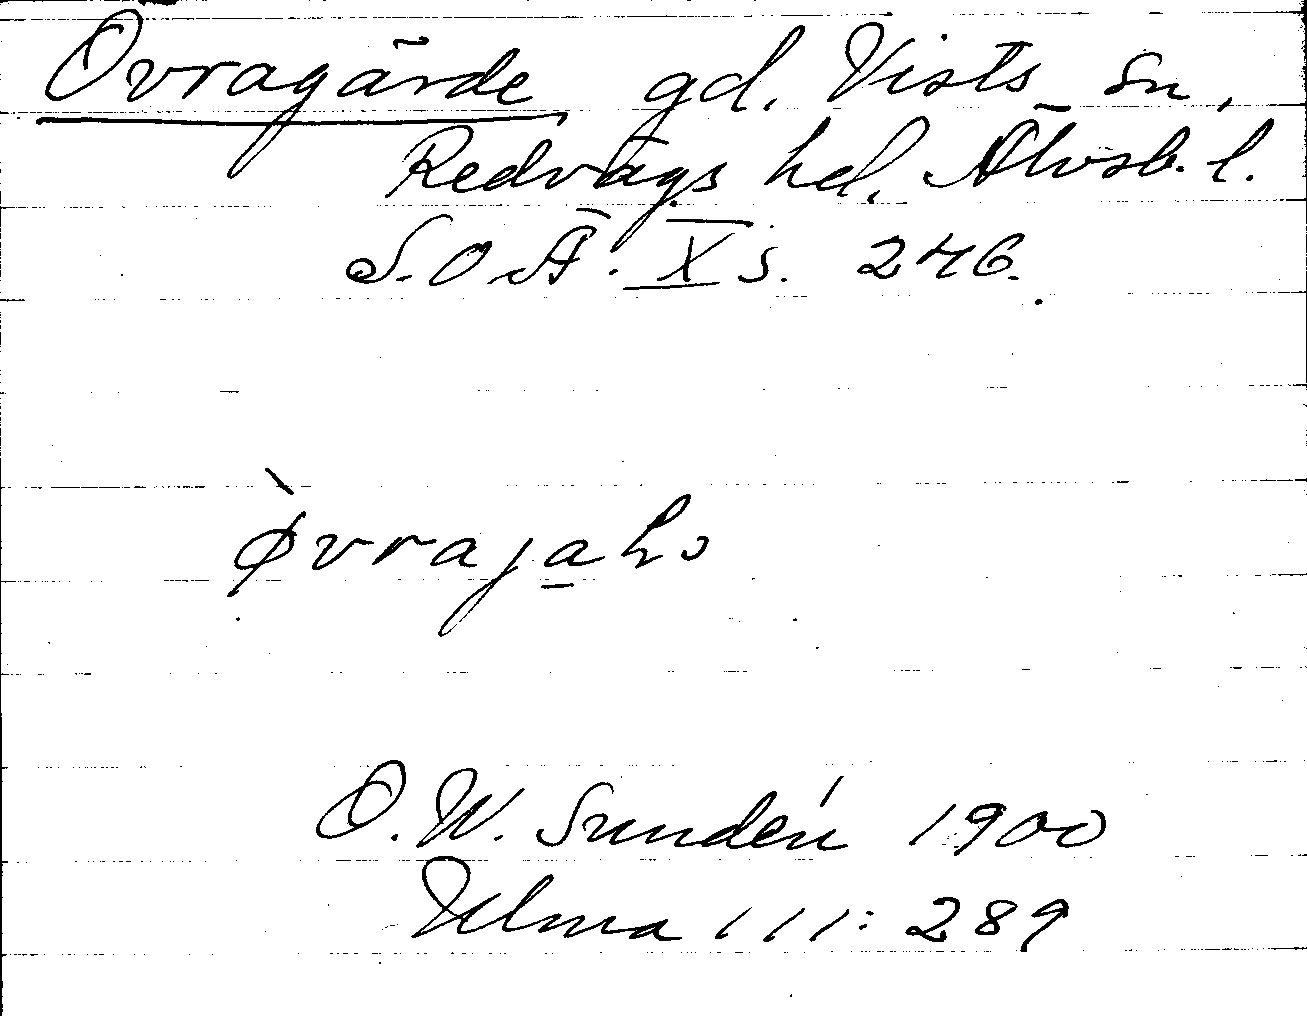 Övragärde gd. Vists sn,
Redvägs hd, Älvsb. l.
S. O Ä. X s. 246.
O. W. Sundén 1900
Ulma 111: 289